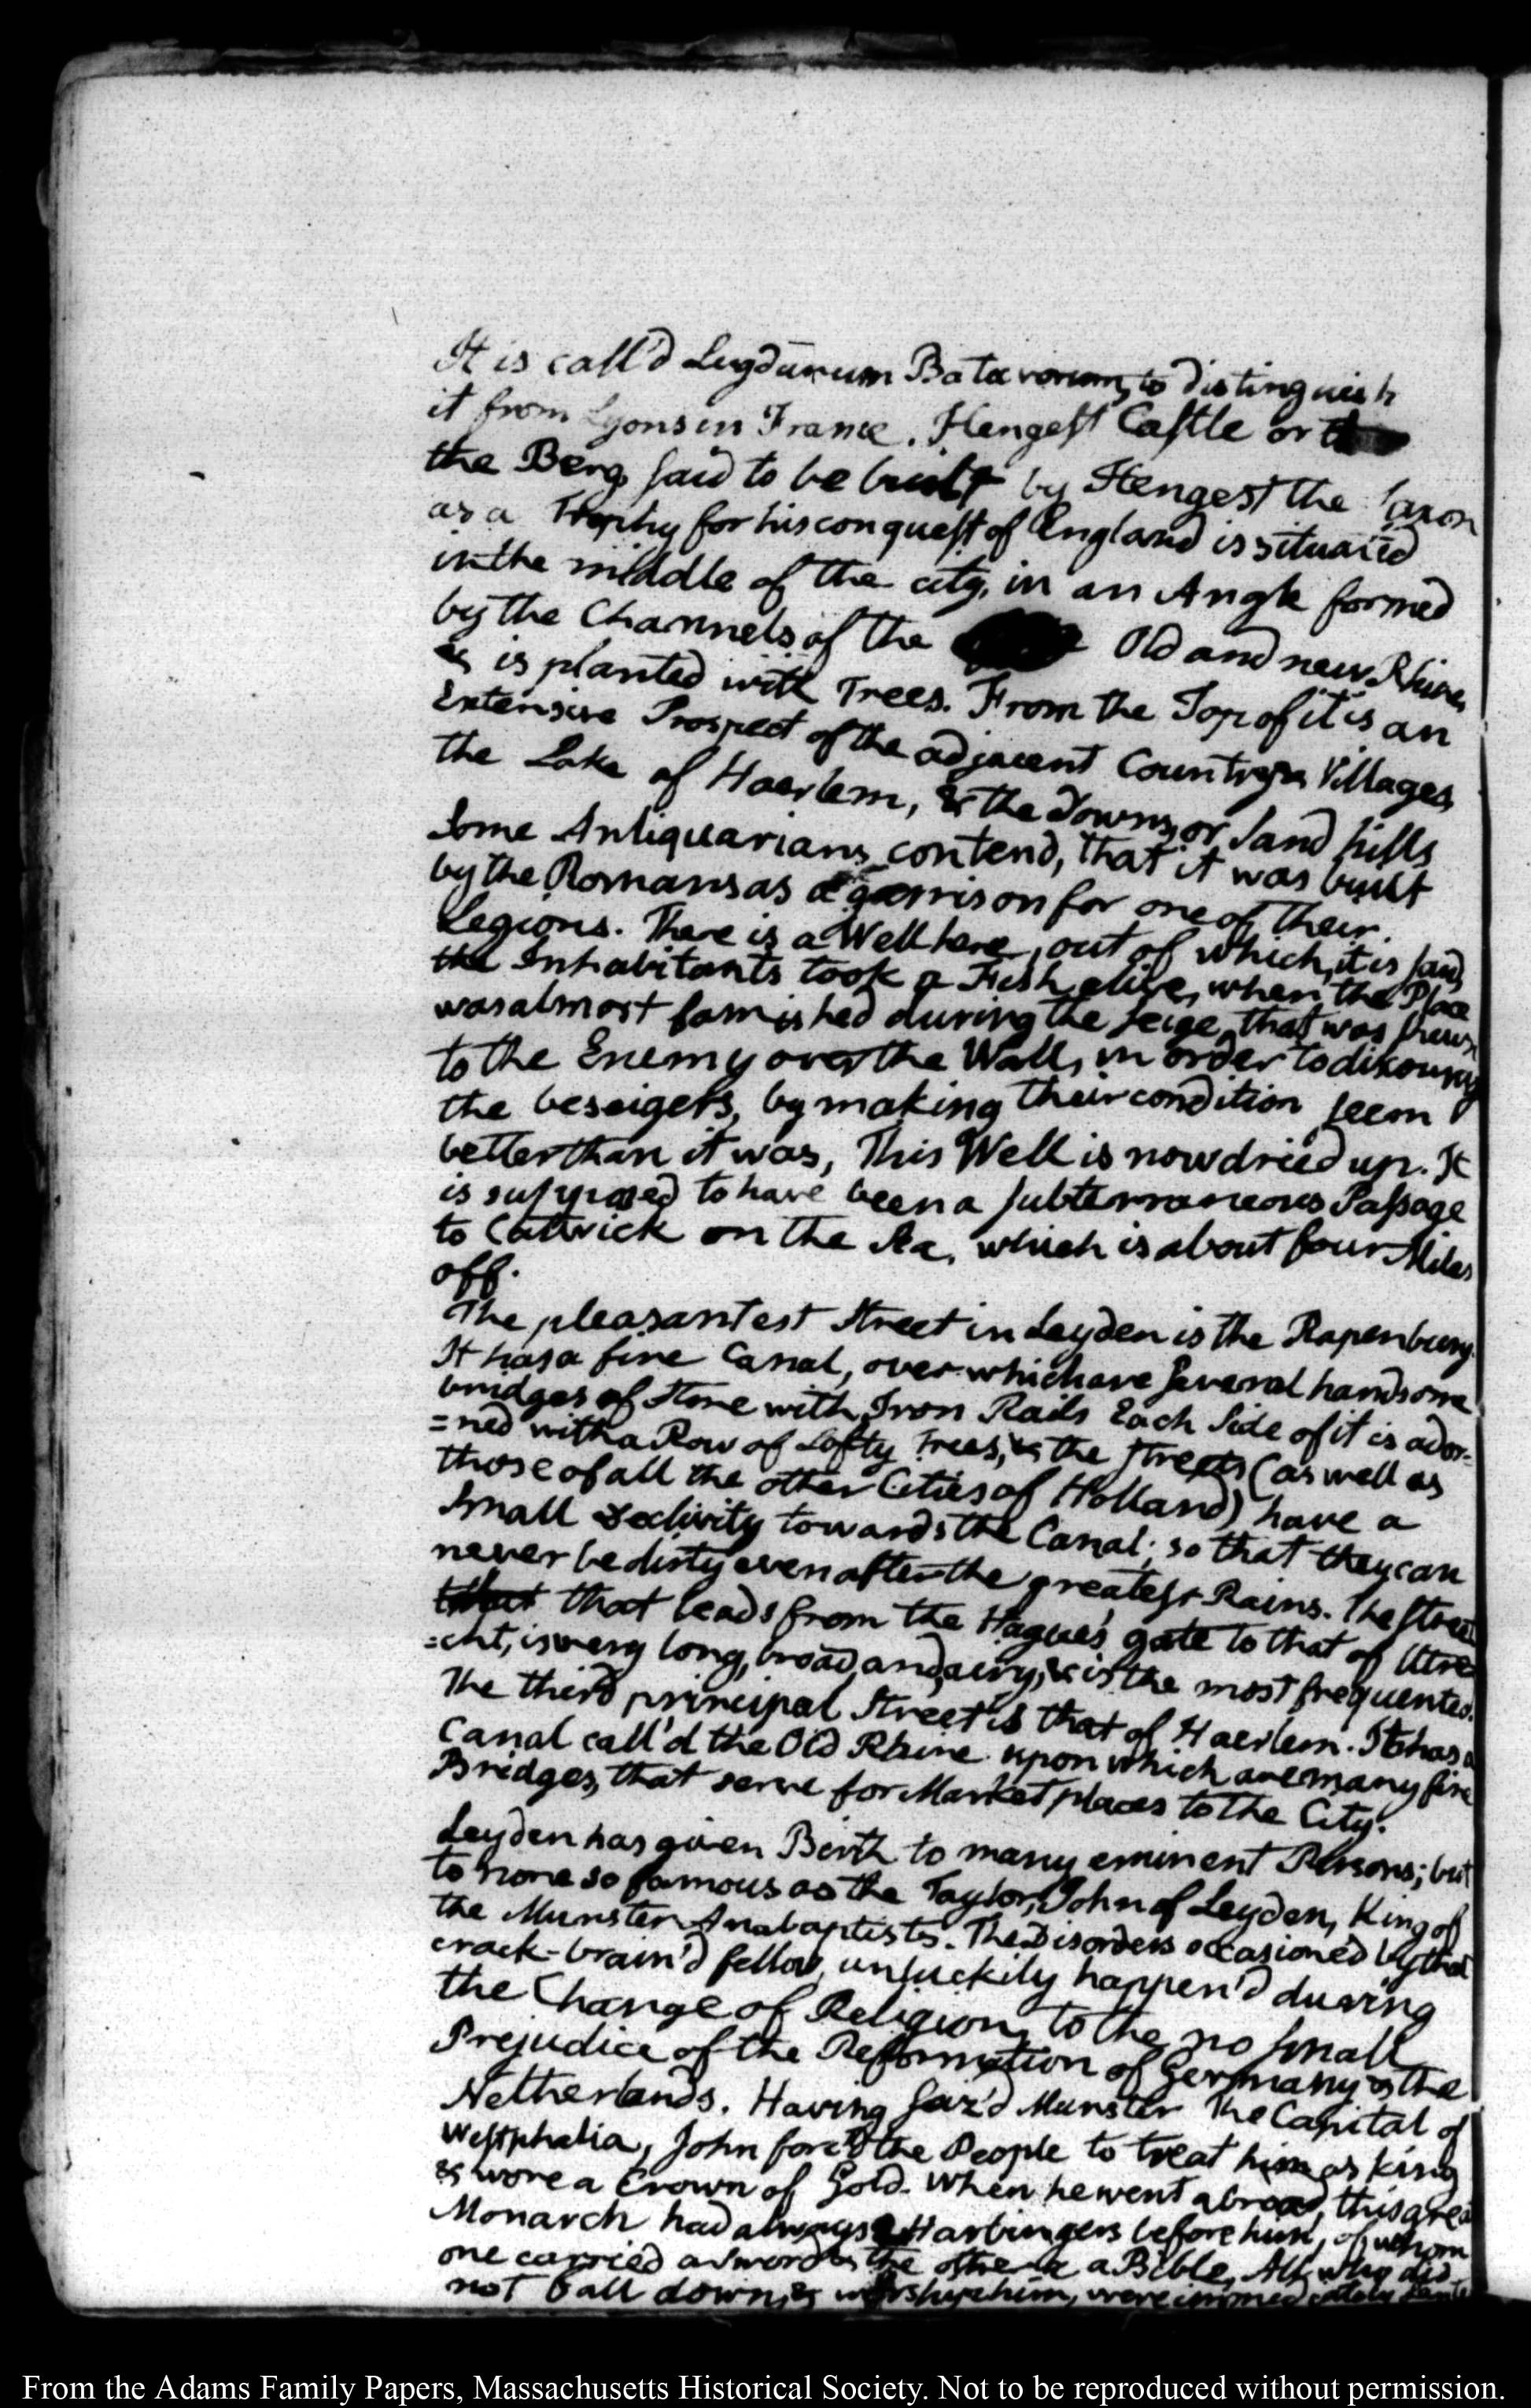 It is call'd Lugdunum Batavorum, to distinguish
it from Lyons in France. Hengest Castle or
the Berg, said to be built by Hengest the Saxon
as a Trophy for his conquest of England is situated
in the middle of the city, in an Angle formed
by the Channels of the Old and new Rhine,
& is planted with Trees. From the Top of it is an
Extensive Prospect of the adjacent Country & Villages
the Lake of Haerlem, & the Downs, or Sand hills
Some Antiquarians contend, that it was built
by the Romans as a garrison for one of their
Legions. There is a Well here, out of which, it is said
the Inhabitants took a Fish alive, when the Place
was almost famished during the seige, that was shewn
to the Enemy over the Wall, in order to discourage
the beseigers, by making their condition seem
better than it was, This Well is now dried up. It
is supposed to have been a subterraneous Passage
to Catwick on the Sea, which is about four Miles
off.
The pleasantest Street in Leyden is the Rapenburg.
It has a fine Canal, over which are several handsome
bridges of Stone with Iron Rails Each Side of it is ador-
=ned with a Row of Lofty Trees, & the streets (as well as
those of all the other Cities of Holland) have a
small declivity towards the Canal; so that they can
never be dirty even after the greatest Rains. The street
that leads from the Hague's gate to that of Utre
=cht, is very long, broad, and airy, & is the most frequented.
The third principal Street is that of Haerlem. It has a
Canal call'd the Old Rhine upon which are many fine
Bridges, that serve for Market places to the City.
Leyden has given Birth to many eminent Persons; but
to none so famous as the Taylor, John of Leyden, King of
the Munster Anabaptists. The Disorders occasioned by that
crack-brain'd fellow, unluckily happen'd during
the Change of Religion, to the no small
Prejudice of the Reformation of Germany & the
Netherlands. Having seiz'd Munster the Capital of
Westphalia, John forc'd the People to treat him as king
& wore a Crown of Gold. When he went abroad, this great
Monarch had always 2 Harbingers before him, of whom
one carried a sword & the other a Bible, All who did
not fall down, & worship him, were immediately